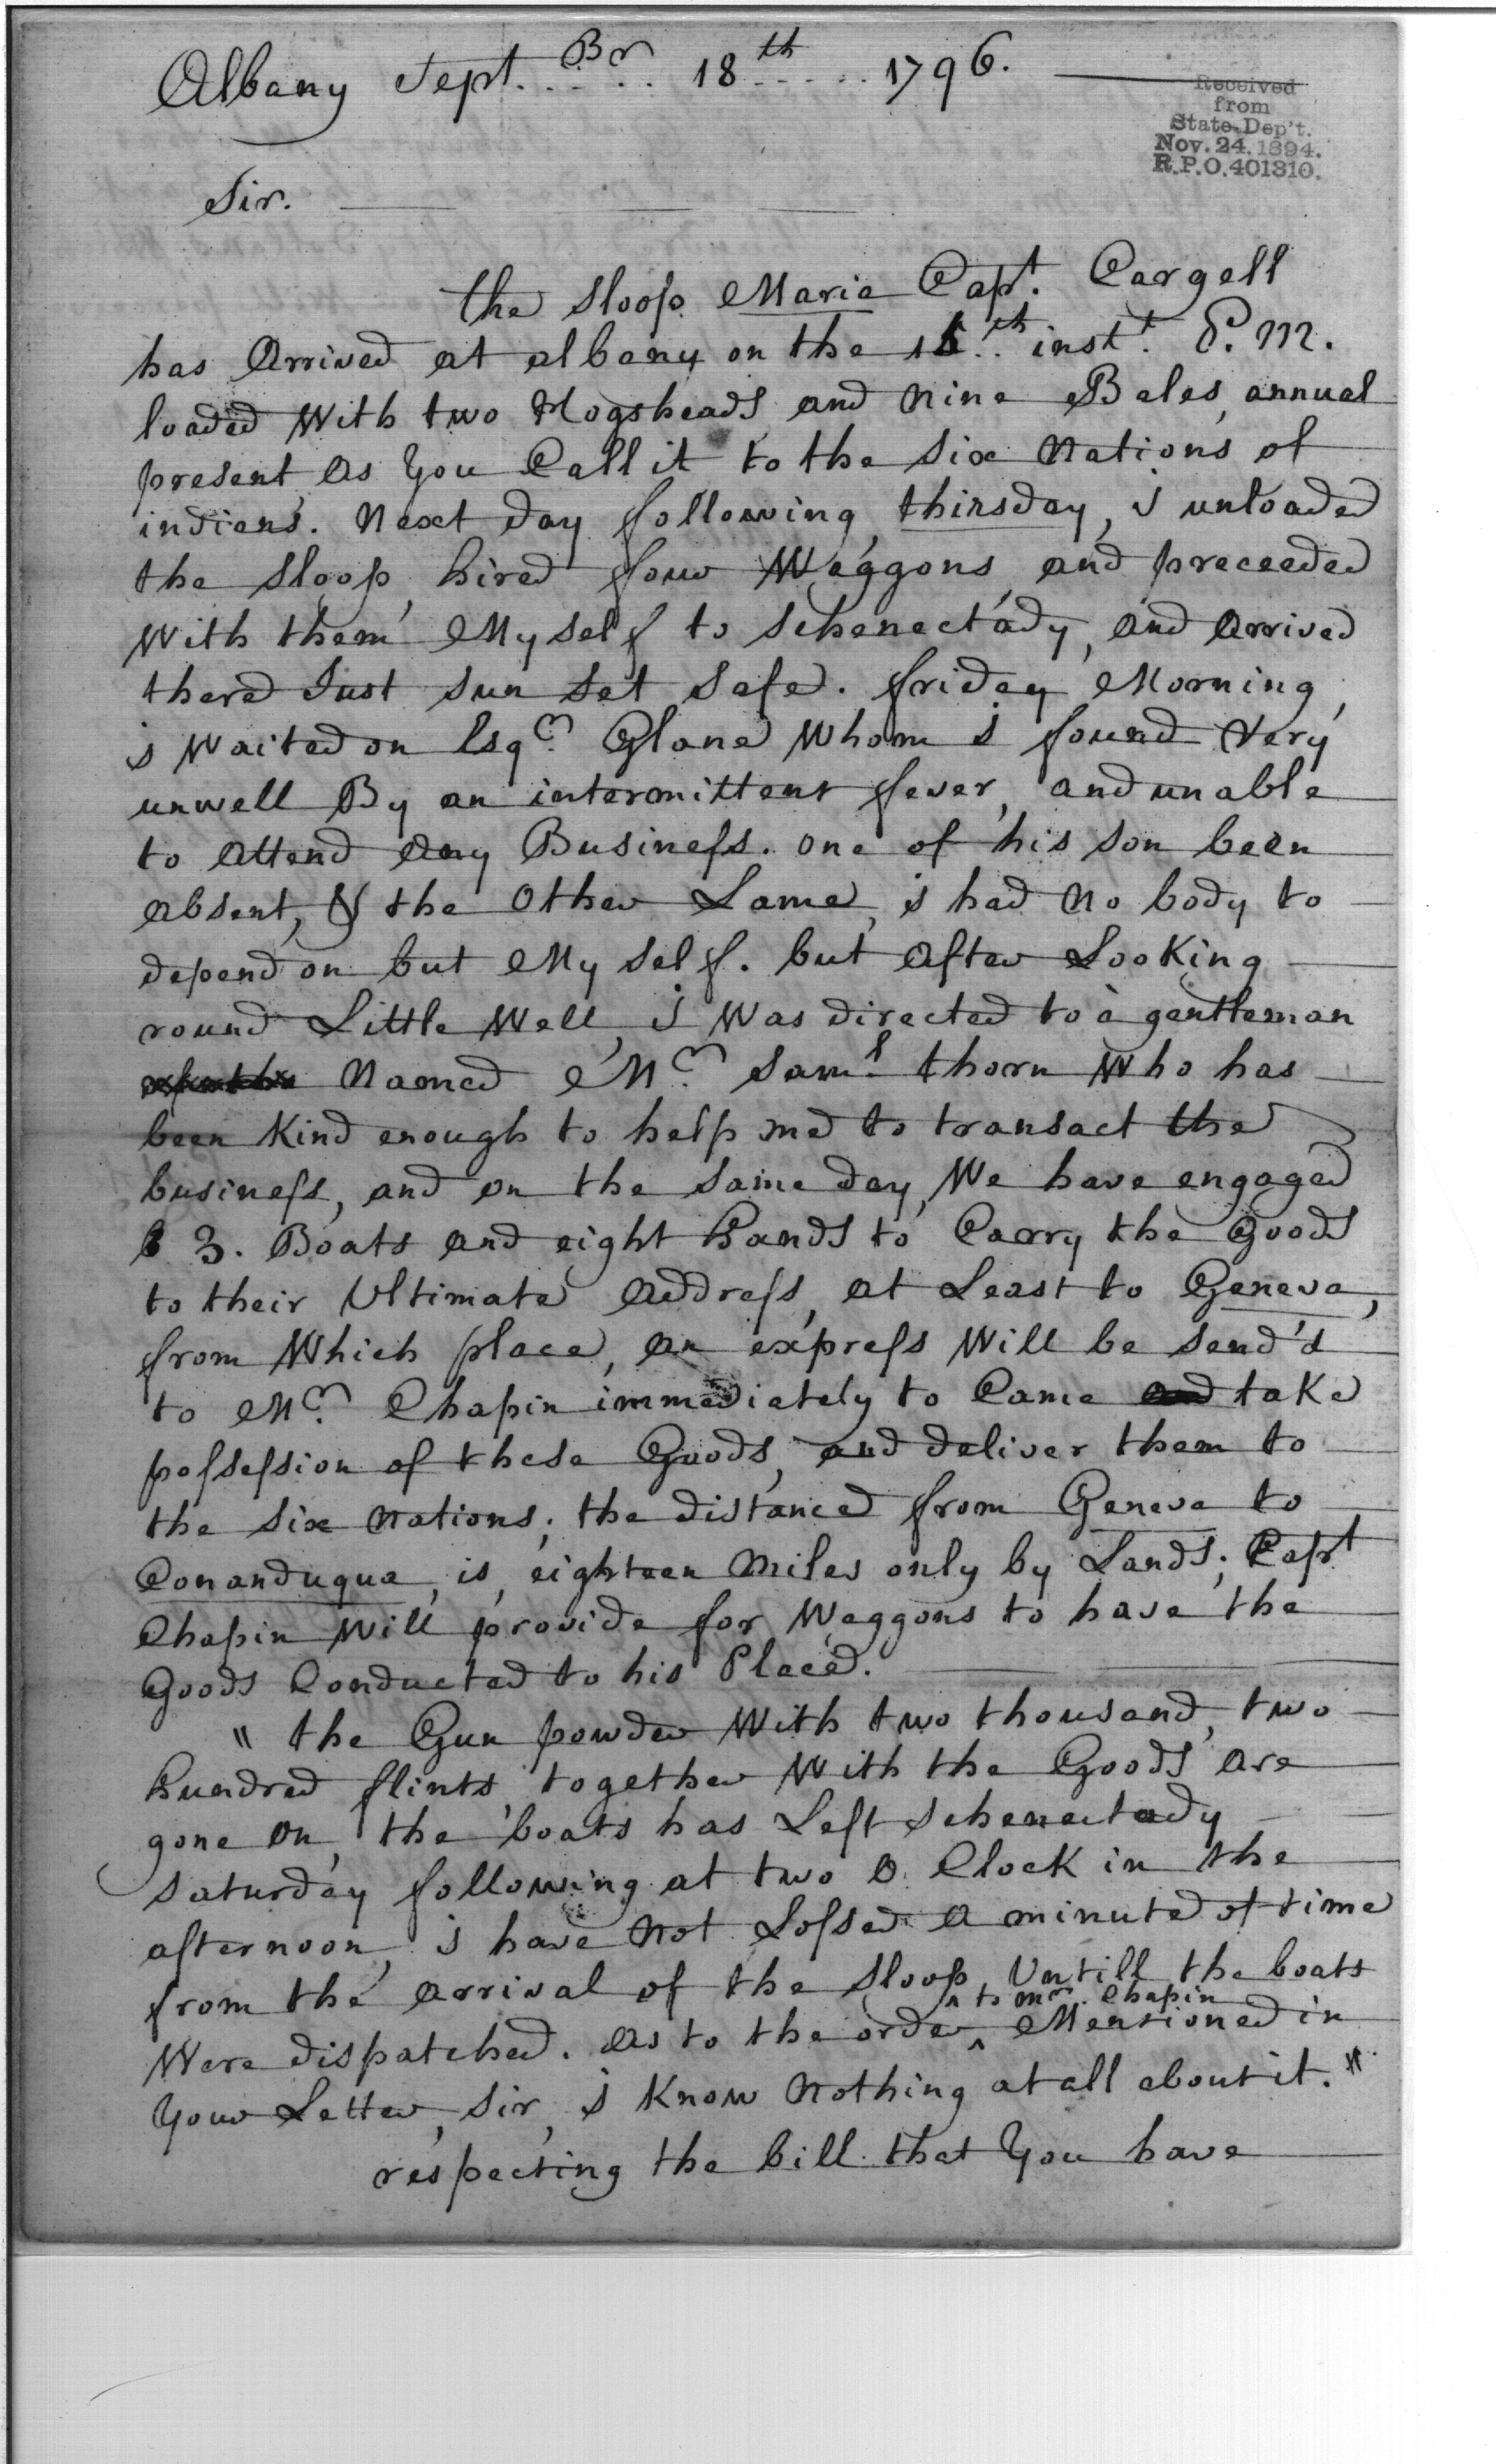 Albany Sept. Br 18th 1796.
Received
from
State Dep't.
Nov. 24. 1894.
R.P.O. 401310.
Sir.
the Sloop Maria Capt. Cargell
has Arrived at albany on the inst. P.M.
loaded With two Hogsheads and Nine Bales, annual
present, as You Call it to the Six Nations of
indians. Next day following, thirsday, i unloaded
the Sloop, hired four Waggons, and preceeded
With them My self to Schenectady, and arrived
there Just Sun Set Safe. friday Morning,
i Waited on Esqr. Glane Whom i found Very
unwell By an intermittent fever, and unable
to Attend any Business. one of his son been
absent, & the Other Lame, i had No body to
depend on but My self. but After Looking
round Little Well, i Was directed to a gentleman
Named Mr. Saml. thorn Who has
been Kind enough to help me to transact the
business, and on the same day, We have engaged
3. Boats and eight hands to Carry the Goods
to their Ultimate Address, at Least to Geneva,
from Which place, an express Will be send'd
to Mr. Chapin immediately to Came and take
possession of these Goods, and deliver them to
the Six Nations; the distance from Geneva to
Conanduqua, is, eighteen Miles only by Lands; Capt
Chapin Will provide for Waggons to have the
Goods Conducted to his Place.
" the Gun powder With two thousand, two
hundred flints, together With the Goods are
gone on, the boats has Left Schenectady
Saturday following at two O Clock in the
afternoon, i have Not Lossed a minute of time
from the arrival of the Sloop, Untill the boats
Were dispatched. as to the order ^ to mr. Chapin Mentioned in
Your Letter, Sir, i Know Nothing at all about it. "
respecting the bill that You have